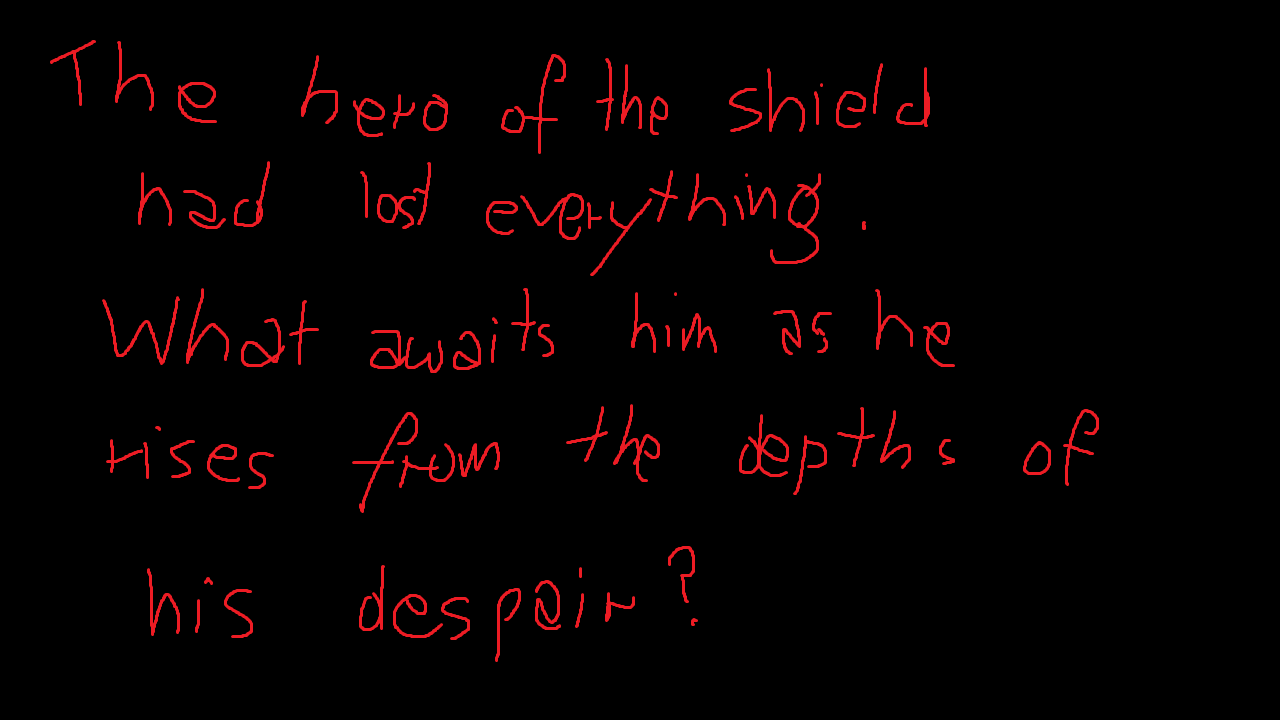 The hero of the shield
had lost everything.
What awaits him as he
rises from the depths of
his despair?